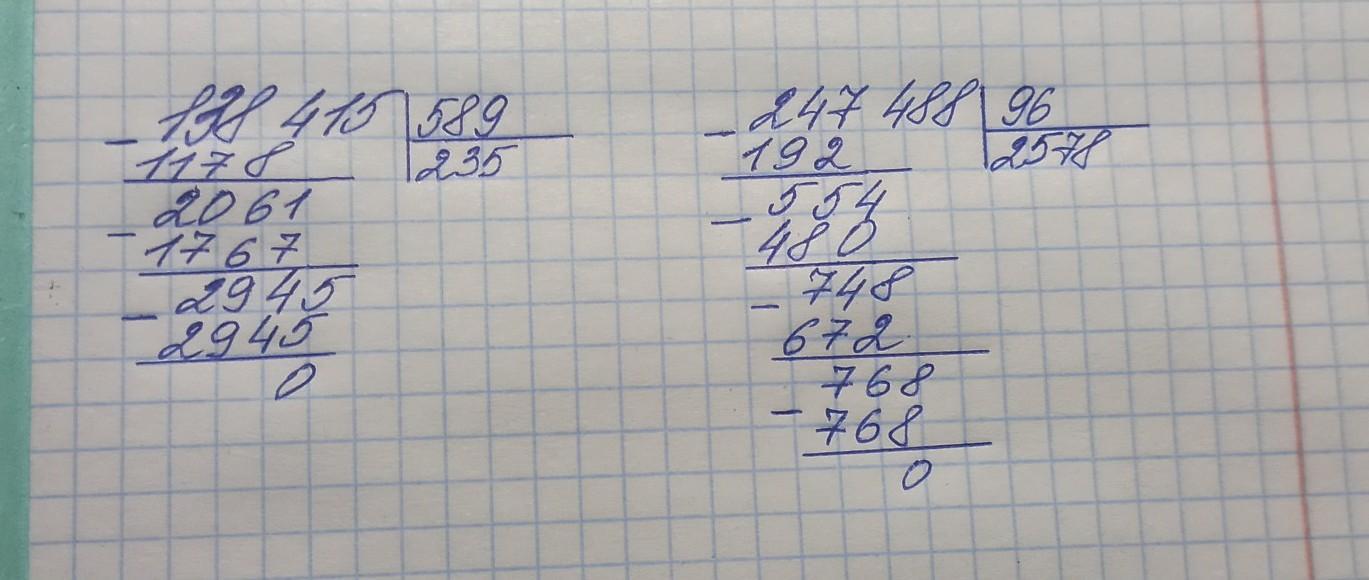 138 415 589
1178 235
2061
1767
2945
2945
0
247 488 96
192 2578
554
480
748
672
768
768
0